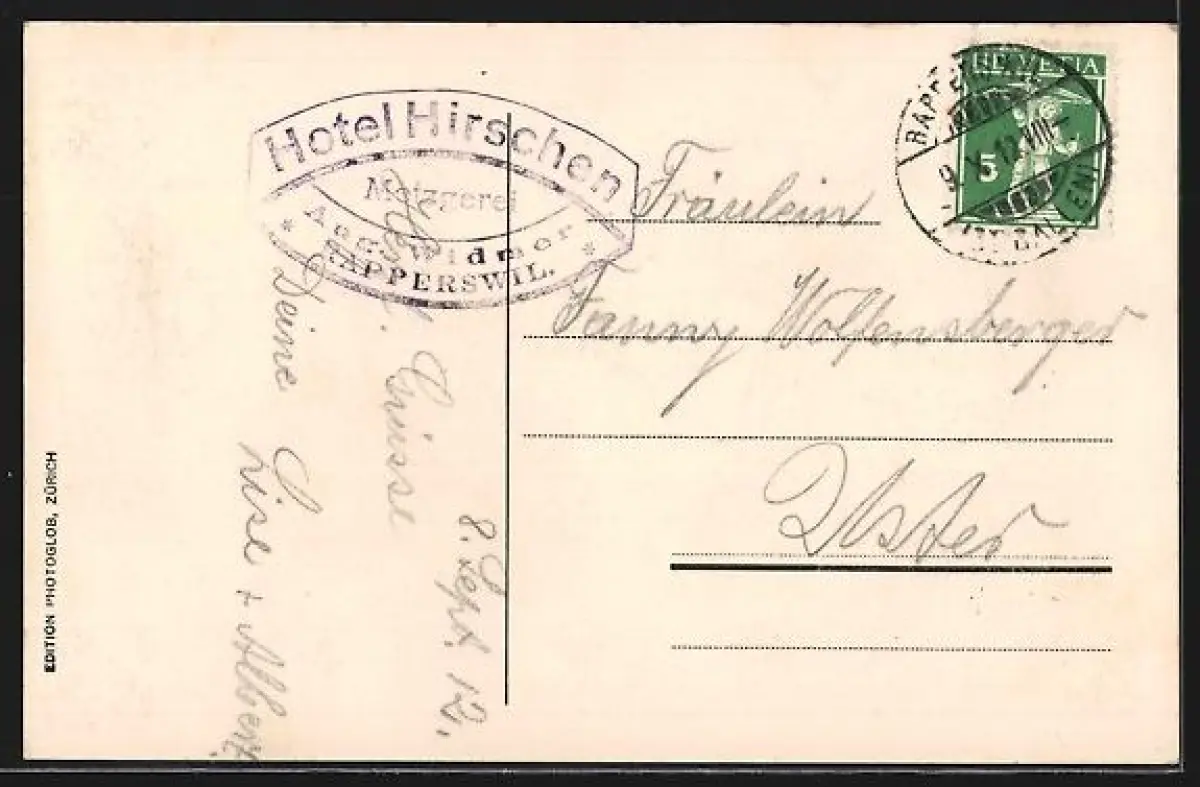 Hotel Hirschen
Metzgerei
Aug. Widmer
RAPPERSWIL.
HELVETIA
5
Fräulein
Fanny Wolfensberger
Uster
8. Sept. 12.
Grüsse
Deine
Lise + Albert
EDITION PHOTOGLOB, ZÜRICH